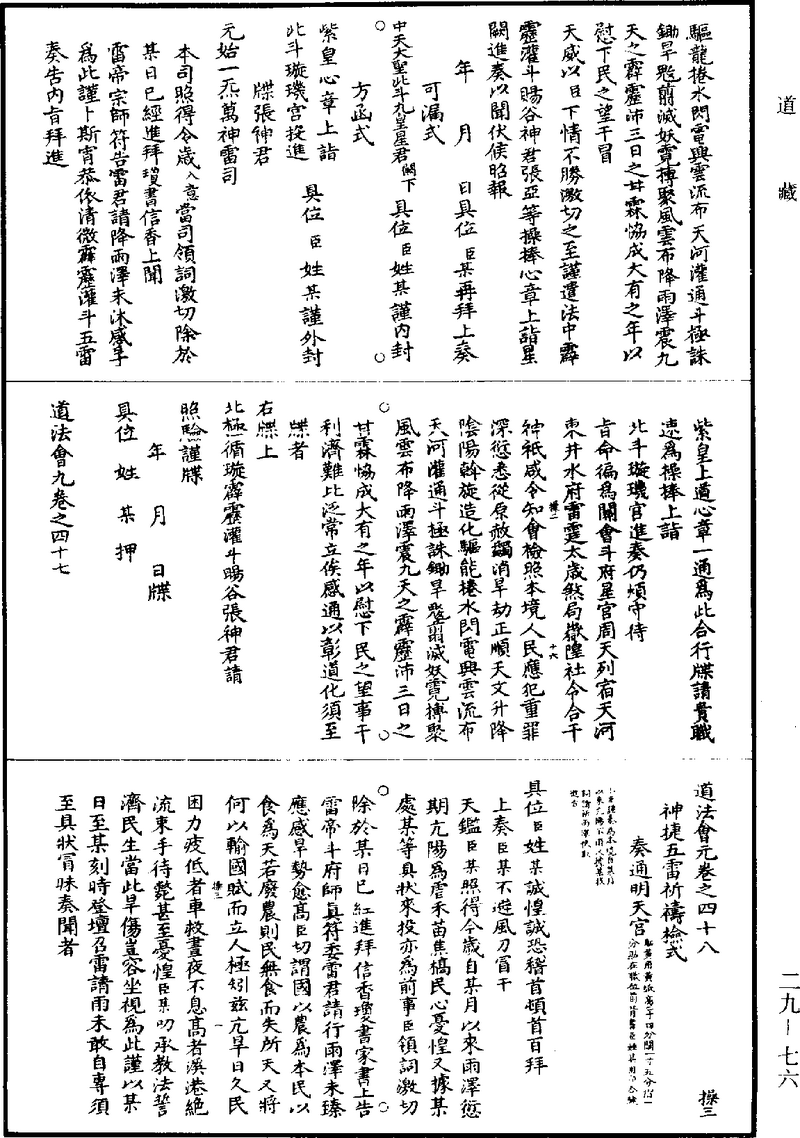 道藏
驅龍捲水閃電興雲流布天河灌通斗極誅
鋤旱魃剪滅妖霓摶聚風雲布降雨澤震九
天之霹靂沛三日之甘霖恊成大有之年以
慰下民之望干冒
天威以日下情不勝激切之至謹遣法中霹
靂灌斗暘谷神君張亞等操捧心章上詣星
闕進奏以聞伏候昭報
年月日具位臣某再拜上奏
可漏式
中天大聖北斗九皇星君闕下具位臣姓某謹內封
方函式
紫皇心章上詣
北斗璇璣宮投進具位臣姓某謹外封
牒張伸君
元始一炁萬神雷司
本司照得今歲入意當司領詞激切除於
某日已經進拜瓊書信香上聞
雷帝宗師符告雷君請降雨澤未沐感孚
爲此謹卜斯宵恭依清微霹靂灌斗五雷
奏告內旨拜進
紫皇上道心章一通爲此合行牒請貴職
速爲操捧上詣
北斗璇璣宮進奏仍煩守待
旨命徧爲關會斗府星官周天列宿天河
東井水府雷霆太歲煞局撒隍社令合干
神祇咸令知會檢照本境人民應犯重罪
深愆悉從原赦蠲消旱劫正順天文升降
陰陽斡旋造化驅能捲水閃電興雲流布
天河灌通斗極誅鋤旱魃剪滅妖霓摶聚
風雲布降雨澤震九天之霹靂沛三日之
甘霖恊成大有之年以慰下民之望事干
利濟難比泛常立俟感通以彰道化須至
牒者
右牒上
北極循璇霹靂灌斗暘谷張神君請
照驗謹牒
年月日牒
具位姓某押
道法會九卷之四十七
操二
十六
道法會元卷之四十八
操三
神捷五雷祈禱檢式
奏通明天宮
具位臣姓某誠惶誠恐稽首頓首百拜
上奏臣某不避風刀冒干
天鑑臣某照得今歲自某月以來雨澤愆
期亢陽爲虐禾苗焦槁民心憂惶又據某
處某等具狀來投亦爲前事臣領詞激切
除於某日已經進拜信香瓊書家書上告
雷帝斗府師眞符委雷君請行雨澤未臻
應感旱勢愈高臣切謂國以農爲本民以
食爲天若廢農則民無食而失所天又將
何以輸國賦而立人極矧兹亢旱日久民
困力疲低者車救晝夜不息高者溪港絕
流束手待斃甚至憂惶臣某叨承教法誓
濟民生當此旱傷豈容坐視爲此謹以某
日至某刻時登壇召雷請雨未敢自專須
至具狀冒昧奏聞者
操三
一
二九－七六